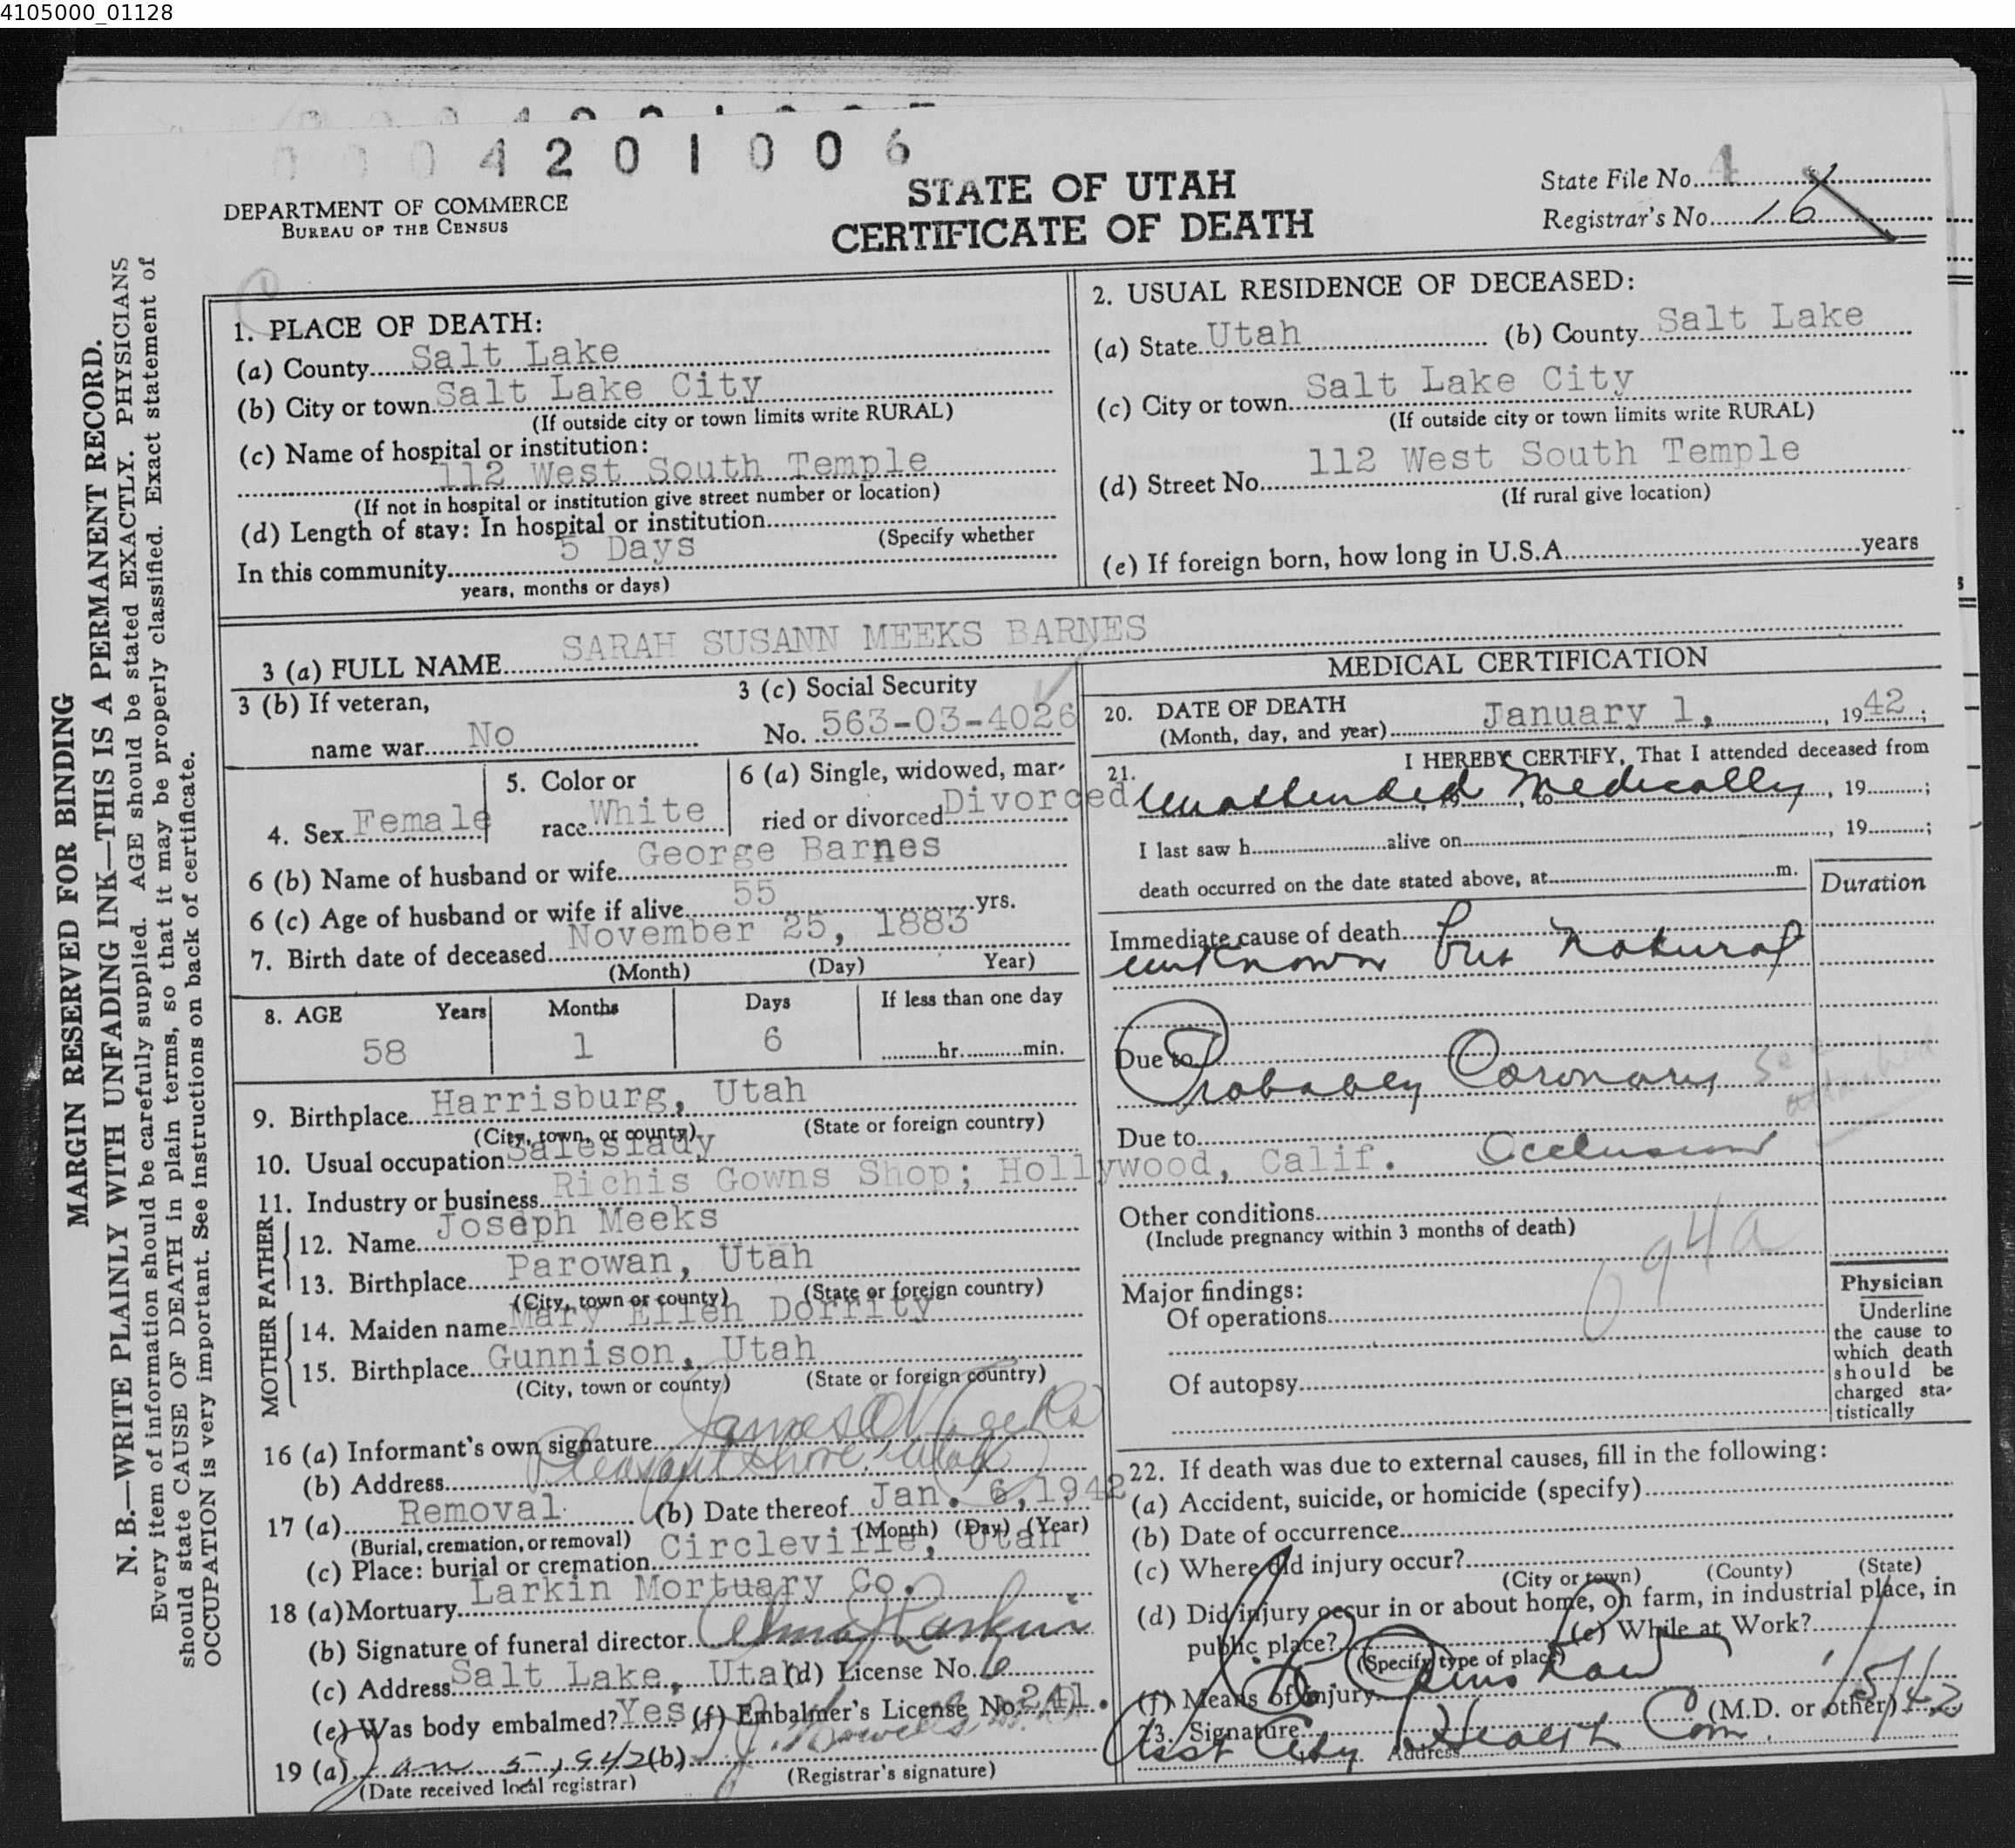 4105000_01128
0004201006
DEPARTMENT OF COMMERCE
BUREAU OF THE CENSUS
STATE OF UTAH
CERTIFICATE OF DEATH
State File No. 4
Registrar's No. 16
MARGIN RESERVED FOR BINDING
N. B.—WRITE PLAINLY WITH UNFADING INK—THIS IS A PERMANENT RECORD.
Every item of information should be carefully supplied. AGE should be stated EXACTLY. PHYSICIANS
should state CAUSE OF DEATH in plain terms, so that it may be properly classified. Exact statement of
OCCUPATION is very important. See instructions on back of certificate.
1. PLACE OF DEATH:
(a) County Salt Lake
(b) City or town Salt Lake City
(If outside city or town limits write RURAL)
(c) Name of hospital or institution:
112 West South Temple
(If not in hospital or institution give street number or location)
(d) Length of stay: In hospital or institution
(Specify whether
In this community 5 Days
years, months or days)
2. USUAL RESIDENCE OF DECEASED:
(a) State Utah (b) County Salt Lake
(c) City or town Salt Lake City
(If outside city or town limits write RURAL)
(d) Street No. 112 West South Temple
(If rural give location)
(e) If foreign born, how long in U.S.A. years
3 (a) FULL NAME SARAH SUSANN MEEKS BARNES
3 (b) If veteran,
name war No
3 (c) Social Security
No. 563-03-4026
4. Sex Female
5. Color or
race White
6 (a) Single, widowed, mar-
ried or divorced Divorced
6 (b) Name of husband or wife George Barnes
6 (c) Age of husband or wife if alive 55 yrs.
7. Birth date of deceased November 25, 1883
(Month) (Day) Year)
8. AGE Years Months Days If less than one day
58 1 6 hr. min.
9. Birthplace Harrisburg, Utah
(City, town, or county) (State or foreign country)
10. Usual occupation Saleslady
11. Industry or business Richis Gowns Shop; Hollywood, Calif.
FATHER
12. Name Joseph Meeks
13. Birthplace Parowan, Utah
(City, town or county) (State or foreign country)
MOTHER
14. Maiden name Mary Ellen Dorrity
15. Birthplace Gunnison, Utah
(City, town or county) (State or foreign country)
16 (a) Informant's own signature James O Meeks
(b) Address Pleasant Grove, Utah
17 (a) Removal (b) Date thereof Jan. 6, 1942
(Burial, cremation, or removal) (Month) (Day) (Year)
(c) Place: burial or cremation Circleville, Utah
18 (a) Mortuary Larkin Mortuary Co.
(b) Signature of funeral director Alma J Larkin
(c) Address Salt Lake, Utah (d) License No. 6
(e) Was body embalmed? Yes (f) Embalmer's License No. 241.
19 (a) Jan 5, 1942 (b)
(Date received local registrar) (Registrar's signature)
MEDICAL CERTIFICATION
20. DATE OF DEATH
(Month, day, and year) January 1, 1942;
21. I HEREBY CERTIFY, That I attended deceased from
Unattended Medically, 19 ;
I last saw h alive on , 19 ;
death occurred on the date stated above, at m.
Duration
Immediate cause of death
unknown but natural
Due to
Probabley Coronary
See attached
Due to
Occlusion
Other conditions
(Include pregnancy within 3 months of death)
094a
Major findings:
Of operations
Of autopsy
Physician
Underline
the cause to
which death
should be
charged sta-
tistically
22. If death was due to external causes, fill in the following:
(a) Accident, suicide, or homicide (specify)
(b) Date of occurrence
(c) Where did injury occur?
(City or town) (County) (State)
(d) Did injury occur in or about home, on farm, in industrial place, in
public place? (e) While at Work?
(Specify type of place)
(f) Means of injury
23. Signature (M.D. or other) 1/5/42
Address
Asst City Health Com.